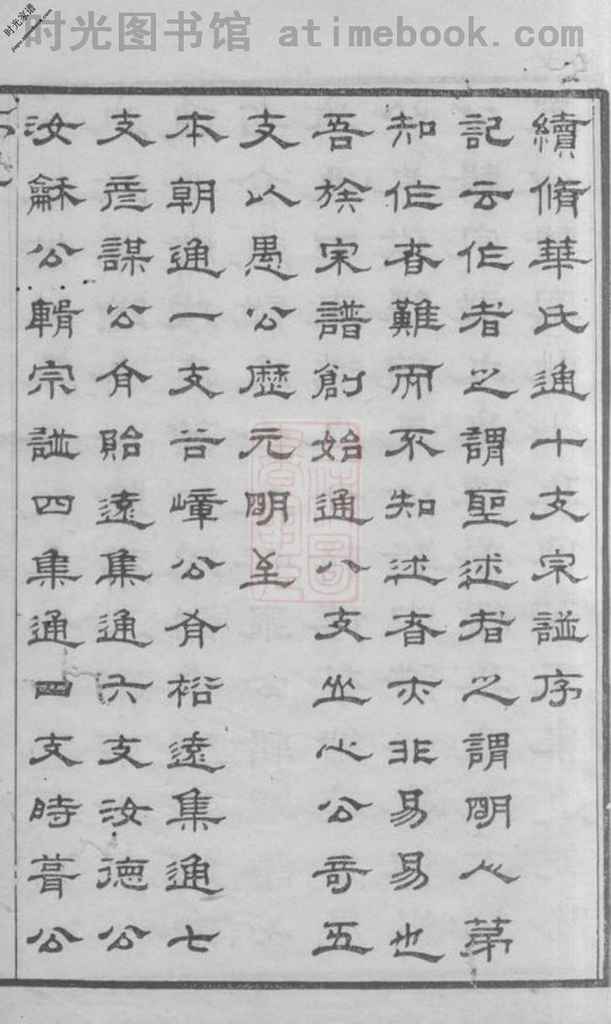 时光图书馆 atimebook.com
时光家谱
續脩華氏通十支宗譜序
記云作者之謂聖述者之謂明人第
知作者難而不知述者亦非易易也
吾族宗譜創始通八支坐心公奇五
支以愚公歷元明至
本朝通一支谷嶂公有裕遠集通七
支彦謀公有貽遠集通六支汝德公
汝龢公輯宗譜四集通四支時葺公